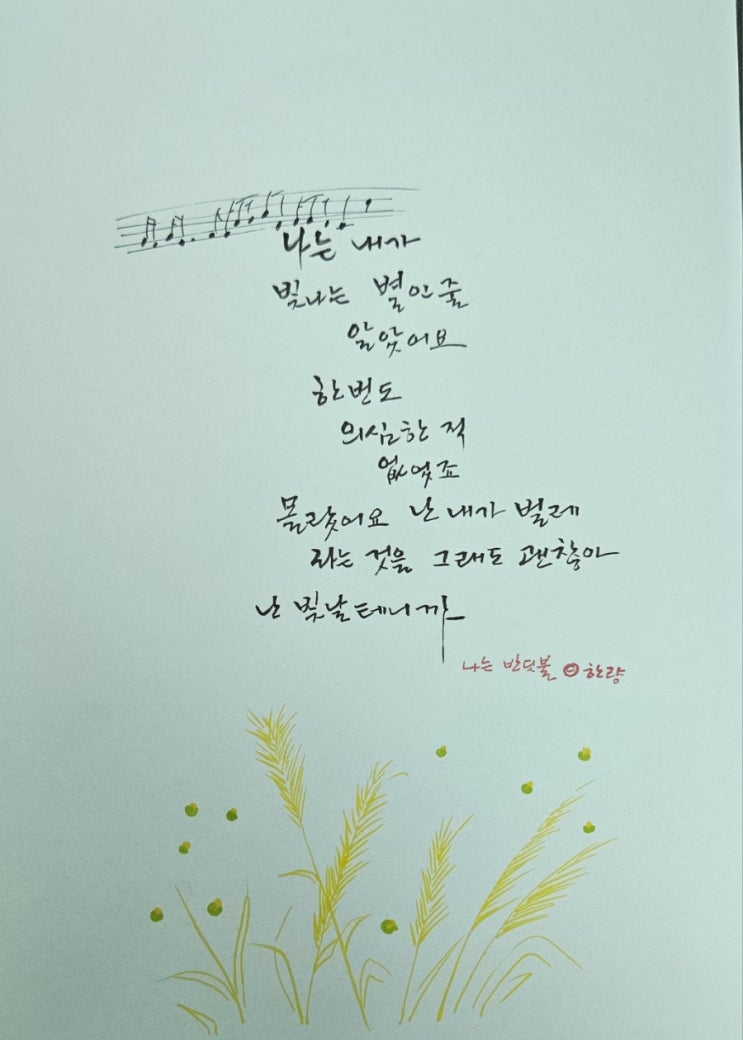 나는 내가
빛나는 별인줄
알았어요
한번도
의심한 적
없었죠
몰랐어요 난 내가 벌레
라는 것을 그래도 괜찮아
난 빛날테니까
나는 반딧불 한량